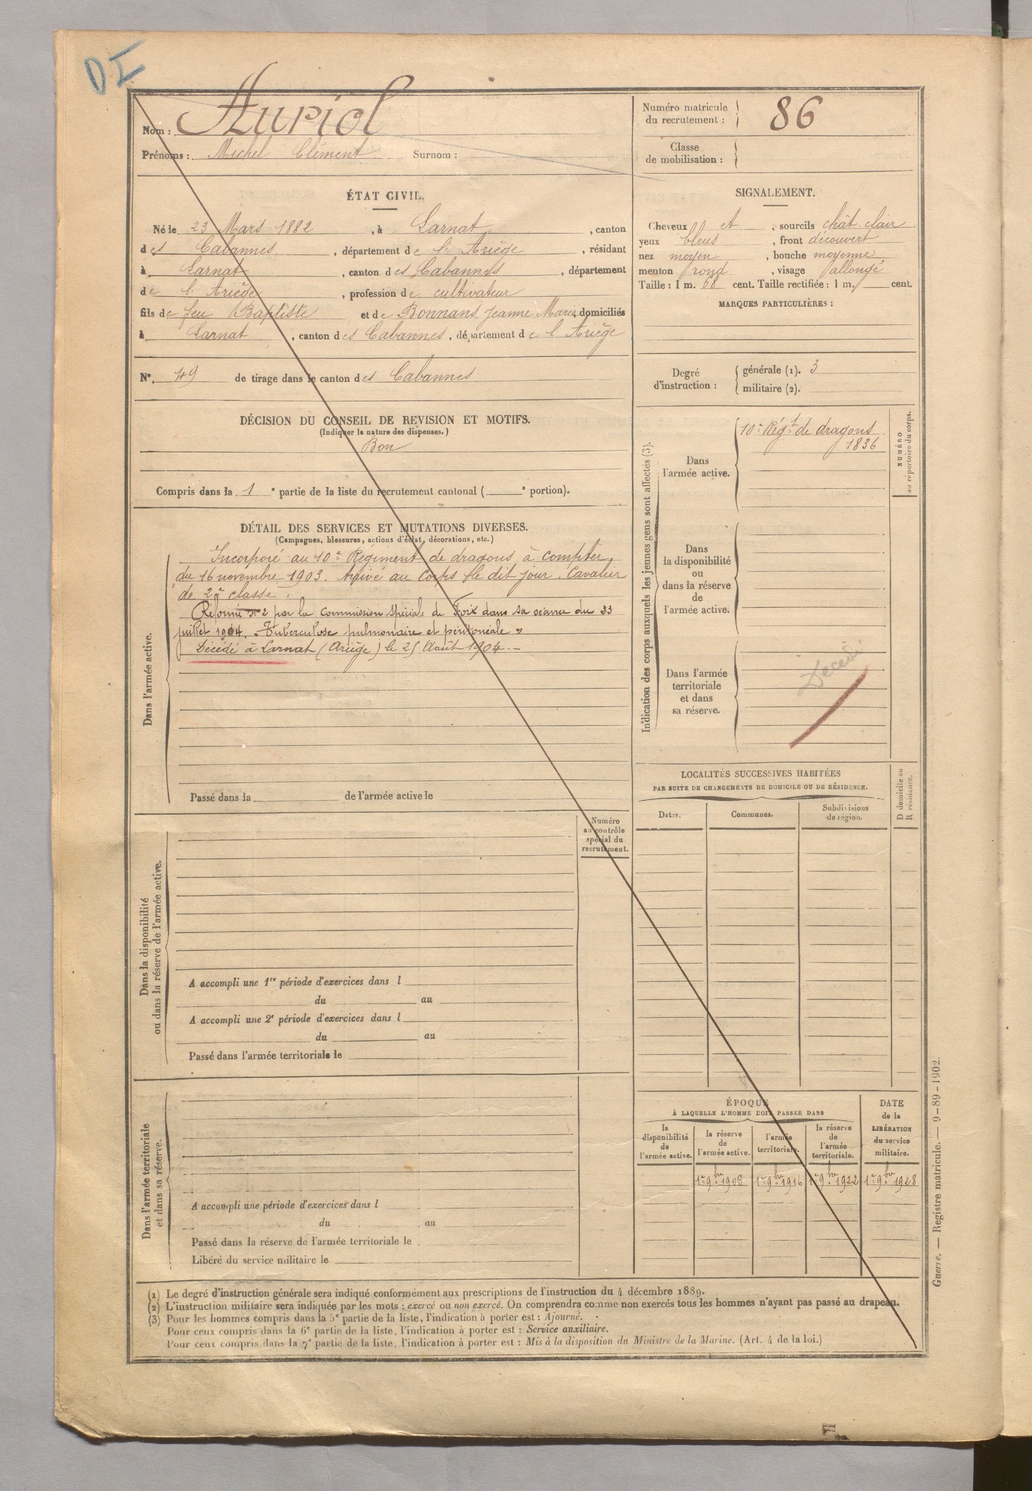 DI
Nom : Auriol
Prénoms : Michel Clément Surnom :
Numéro matricule du recrutement : 86
Classe de mobilisation :
ÉTAT CIVIL.
Né le 23 Mars 1882, à Larnat, canton
des Cabannes, département de l'Ariège, résidant
à Larnat, canton des Cabannes, département
de l'Ariège, profession de cultivateur
fils de feu Baptiste et de Bonnans Jeanne Marie, domiciliés
à Larnat, canton des Cabannes, département de l'Ariège
N° 49 de tirage dans le canton des Cabannes
SIGNALEMENT.
Cheveux et, sourcils chât clair
yeux bleus, front découvert
nez moyen, bouche moyenne
menton rond, visage allongé
Taille : 1 m. 68 cent. Taille rectifiée : 1 m. cent.
MARQUES PARTICULIÈRES :
Degré d'instruction :
générale (1). 3
militaire (2).
DÉCISION DU CONSEIL DE REVISION ET MOTIFS.
(Indiquer la nature des dispenses.)
Bon
Compris dans la 1e partie de la liste du recrutement cantonal ( e portion).
DÉTAIL DES SERVICES ET MUTATIONS DIVERSES.
(Campagnes, blessures, actions d'éclat, décorations, etc.)
Dans l'armée active.
Incorporé au 10e Régiment de dragons à compter
du 16 novembre 1903. Arrivé au Corps le dit jour. Cavalier
de 2e classe.
Réformé n° 2 par la Commission Spéciale de Foix dans sa séance du 23
juillet 1904. Tuberculose pulmonaire et péritonéale
Décédé à Larnat (Ariège) le 25 Août 1904.
Passé dans la de l'armée active le
Indication des corps auxquels les jeunes gens sont affectés (3).
NUMÉRO au répertoire du corps.
Dans l'armée active.
10e Régt de dragons
1836
Dans la disponibilité ou dans la réserve de l'armée active.
Dans l'armée territoriale et dans sa réserve.
Décédé
LOCALITÉS SUCCESSIVES HABITÉES
PAR SUITE DE CHANGEMENTS DE DOMICILE OU DE RÉSIDENCE.
Dates. Communes. Subdivisions de région.
D domicile ou R résidence.
Numéro au contrôle spécial du recrutement.
Dans la disponibilité ou dans la réserve de l'armée active.
A accompli une 1re période d'exercices dans l
du au
A accompli une 2e période d'exercices dans l
du au
Passé dans l'armée territoriale le
Dans l'armée territoriale et dans sa réserve.
A accompli une période d'exercices dans l
du au
Passé dans la réserve de l'armée territoriale le
Libéré du service militaire le
ÉPOQUE
À LAQUELLE L'HOMME DOIT PASSER DANS
la disponibilité de l'armée active.
la réserve de l'armée active.
l'armée territoriale.
la réserve de l'armée territoriale.
DATE de la LIBÉRATION du service militaire.
1er 9bre 1906 1er 9bre 1916 1er 9bre 1922 1er 9bre 1928
(1) Le degré d'instruction générale sera indiqué conformément aux prescriptions de l'instruction du 4 décembre 1889.
(2) L'instruction militaire sera indiquée par les mots : exercé ou non exercé. On comprendra comme non exercés tous les hommes n'ayant pas passé au drapeau.
(3) Pour les hommes compris dans la 5e partie de la liste, l'indication à porter est : Ajourné.
Pour ceux compris dans la 6e partie de la liste, l'indication à porter est : Service auxiliaire.
Pour ceux compris dans la 7e partie de la liste, l'indication à porter est : Mis à la disposition du Ministre de la Marine. (Art. 4 de la loi.)
Guerre. — Registre matricule. — 9-89-1902.